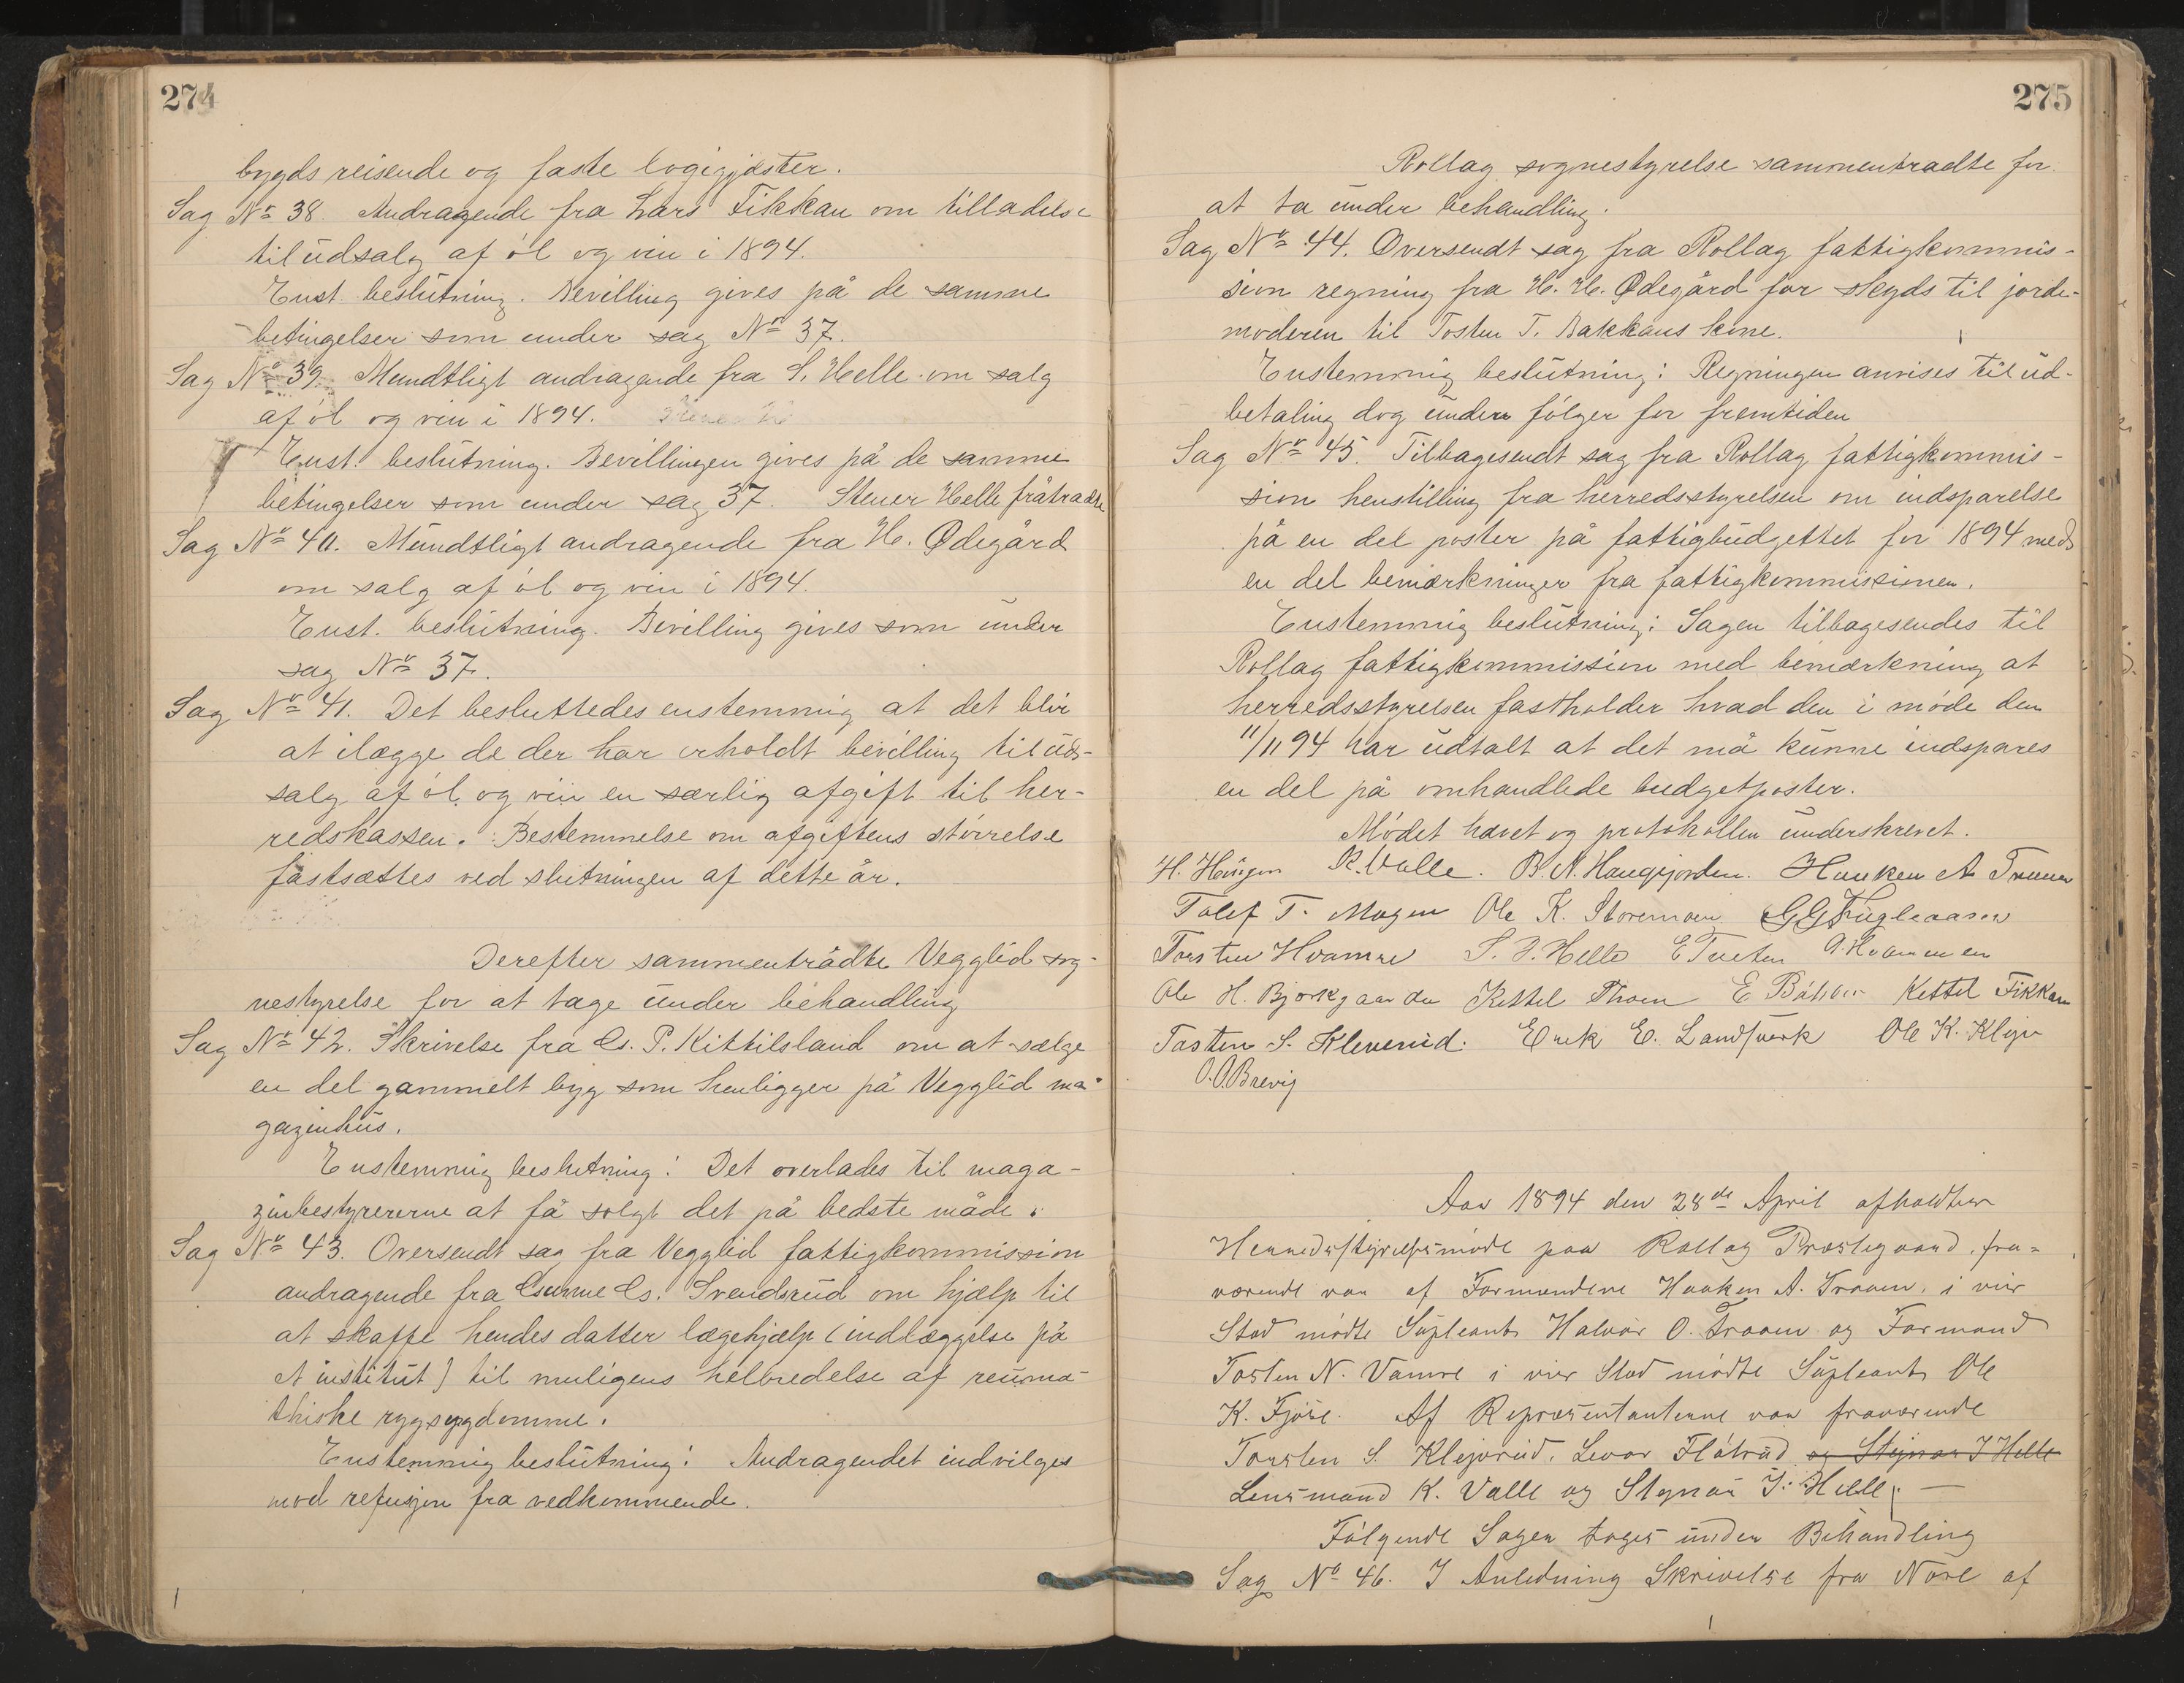 274
bygds reisende og faste logigjæster.
Sag Nr 38. Andragende fra Lars Fikkan om tilladelse
til udsalg af øl og vin i 1894.
Enst. beslutning. Bevilling gives på de samme
betingelser som under sag Nr 37.
Sag No 39. Mundtligt andragende fra S. Helle om salg
af øl og vin i 1894.
Enst. beslutning. Bevillingen gives på de samme
betingelser som under sag 37. Stener Helle fråtradte
Sag Nr 40. Mundtligt andragende fra H. Ødegård
om salg af øl og vin i 1894.
Enst. beslutning. Bevilling gives som under
sag Nr 37.
Sag Nr 41. Det besluttedes enstemmig at det blir
at ilægge de der har erholdt bevilling til ud-
salg af øl og vin en særlig afgift til her-
redskassen. Bestemmelse om afgiftens størrelse
fastsættes ved slutningen af dette år.
Derefter sammentrådte Vegglid sog-
nestyrelse for at tage under behandling
Sag Nr 42. Skrivelse fra G. P. Kittilsland om at sælge
en del gammelt byg som henligger på Vegglid ma-
gazinhus.
Enstemmig beslutning: Det overlades til maga-
zinbestyrererne at få solgt det på bedste måde.
Sag Nr 43. Oversendt sag fra Vegglid fattigkommission
andragende fra Gunne G. Svendsrud om hjælp til
at skaffe hendes datter lægehjælp (indlæggelse på
et institut) til muligens helbredelse af reuma-
thiske rygsygdomme.
Enstemmig beslutning: Andragendet indvilges
mod refusjon fra vedkommende.
275
Rollag sognestyrelse sammentradte for
at ta under behandling.
Sag Nr 44. Oversendt sag fra Rollag fattigkommis-
sion regning fra H. H. Ødegård for skyds til jorde-
moderen til Tosten T. Bakkans kone.
Enstemmig beslutning: Regningen anvises til ud-
betaling dog uden følger for fremtiden
Sag Nr 45. Tilbagesendt sag fra Rollag fattigkommis-
sion henstilling fra herredsstyrelsen om indsparelse
på en del poster på fattigbudgettet for 1894 med
en del bemærkninger fra fattigkommissionen.
Enstemmig beslutning: Sagen tilbagesendes til
Rollag fattigkommission med bemærkning at
herredsstyrelsen fastholder hvad den i møde den
11/11 94 har udtalt at det må kunne indspares
en del på omhandlede budgetposter.
Mødet hævet og protokollen underskrevet.
H. Haugen K. Valle. B. N. Haugejorden. Haaken A Traaen
Tolef T. Mogen Ole K. Storemoen G G Fugleaasen
Torsten Hvamre S. J. Helle E Tveten
Ole H. Bjørkgaarden Kettel Thoen E Kettel Fikkan
Tosten S. Kleverud. Erik E. Landsverk Ole K.
O. O. Brevig
Aar 1894 den 28de April afholdtes
Herredsstyrelsesmøde paa Rollag Præstegaard, fra-
værende var af Formændene Haaken A. Traaen, i vis
Sted mødte Supleant Halvor O. Traaen og Formand
Tosten N. Vamre i vis Sted mødte Supleant Ole
K. Fjøse. Af Repræsentanterne var fraværende
Torsten S. Klejvrud, Levor Flåtrud og Stejnar J Helle
Lensmand K. Valle og Stejnar J. Helle. —
Følgende Sager toges under Behandling
Sag No 46. I Anledning Skrivelse fra Nore af